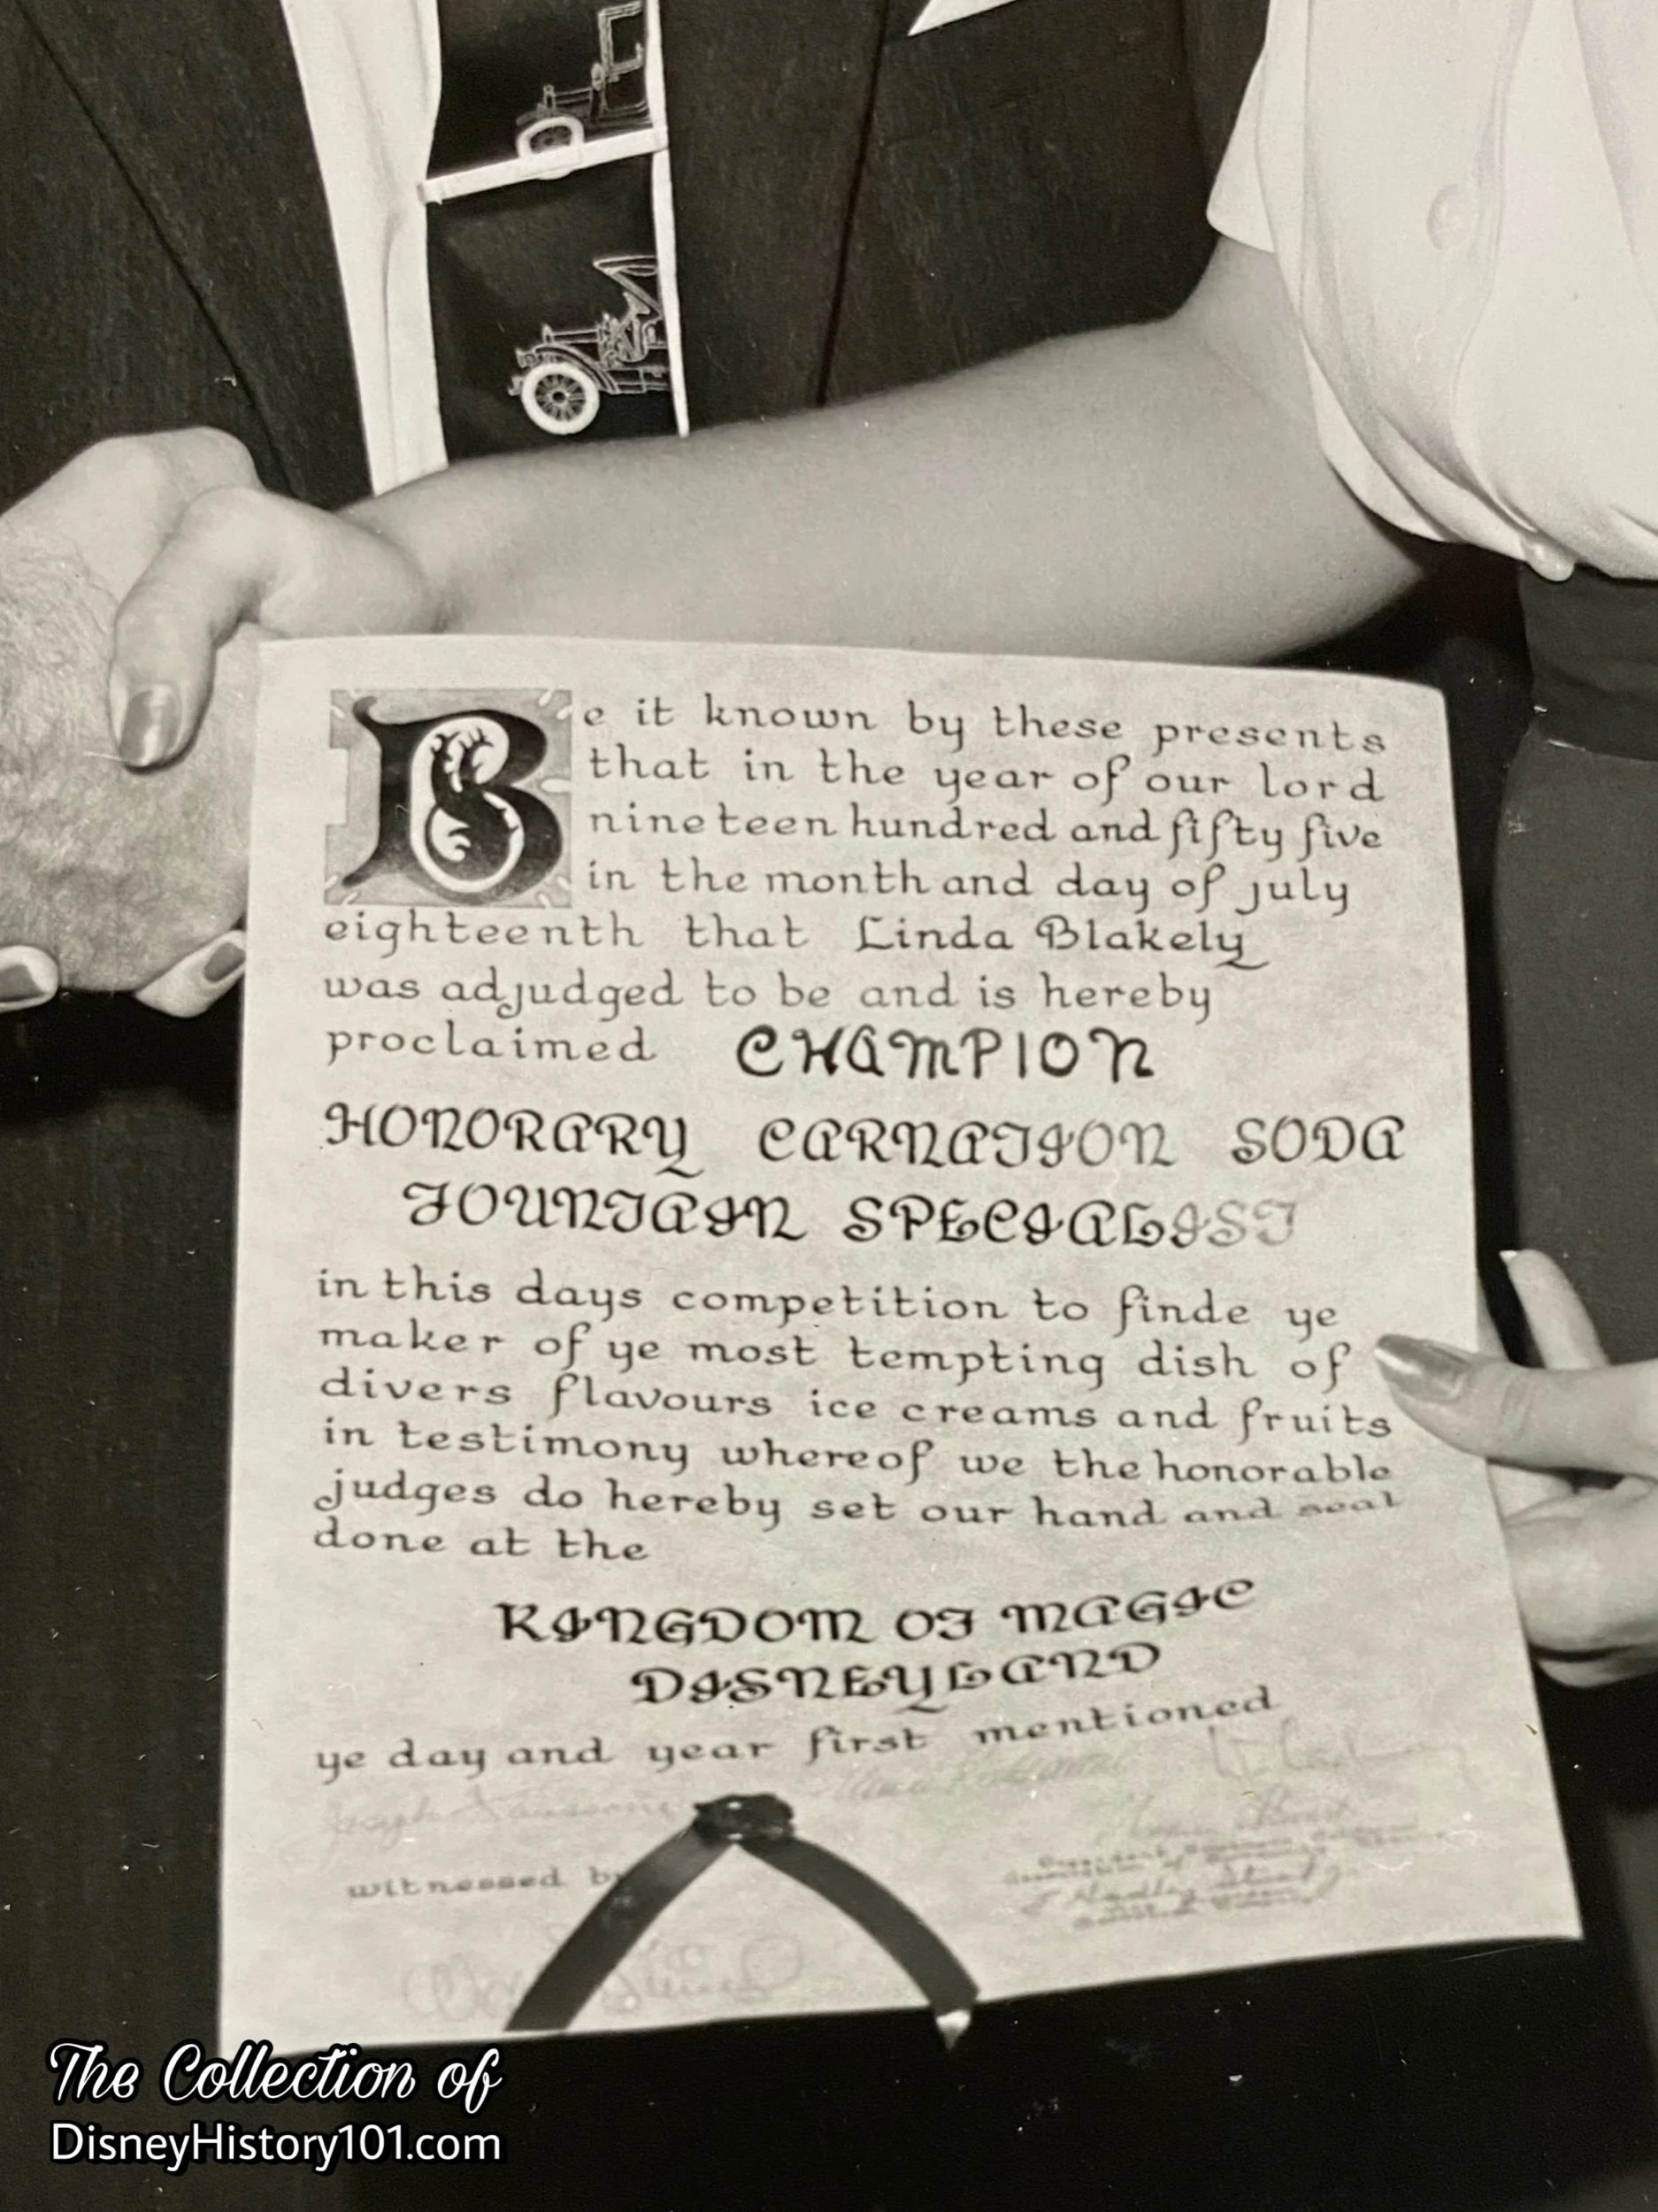 Be it known by these presents
that in the year of our lord
nineteen hundred and fifty five
in the month and day of july
eighteenth that Linda Blakely
was adjudged to be and is hereby
proclaimed CHAMPION
HONORARY CARNATION SODA
FOUNTAIN SPECIALIST
in this days competition to finde ye
maker of ye most tempting dish of
divers flavours ice creams and fruits
in testimony whereof we the honorable
judges do hereby set our hand and seal
done at the
KINGDOM OF MAGIC
DISNEYLAND
ye day and year first mentioned
witnessed by
The Collection of
DisneyHistory101.com